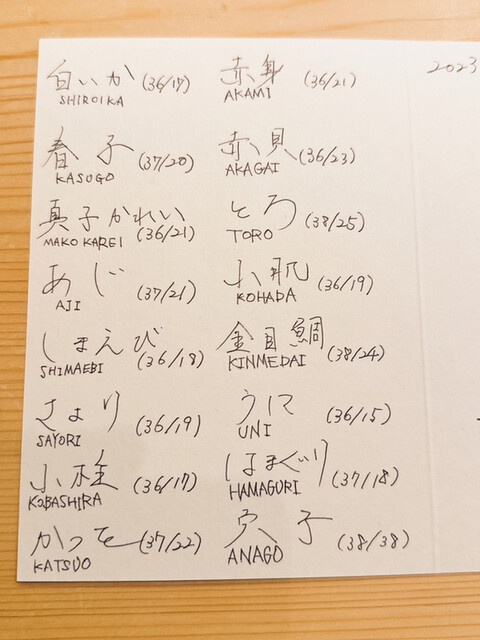 白いか (36/17)
SHIROIKA
春子 (37/20)
KASUGO
真子かれい
MAKO KAREI (36/21)
あじ (37/21)
AJI
しまえび
SHIMAEBI (36/18)
さより (36/19)
SAYORI
小柱 (36/17)
KOBASHIRA
かつを (37/22)
KATSUO
赤身 (36/21)
AKAMI
赤貝 (36/23)
AKAGAI
とろ (38/25)
TORO
小肌 (36/19)
KOHADA
金目鯛
KINMEDAI (38/24)
うに (36/15)
UNI
はまぐり (37/18)
HAMAGURI
穴子 (38/38)
ANAGO
2023